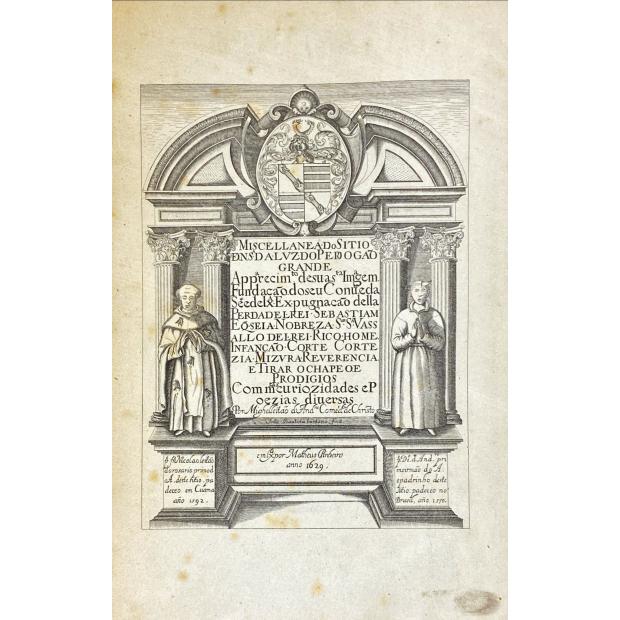 MISCELLANEA DO SITIO
DNSª DA LVZ DO PEDOGAÕ
GRANDE
Appᵃrecimᵗᵒ de suas ᵗᵃ Imgem
Fundaçaõ do seu Conuᵗᵒ e da
See de Lxᵃ Expugnacaõ della
PERDA DELREI SEBASTIAM
E Q̃ SEIA NOBREZA Sᵒʳ Sᵃ VASS
ALLO DELREI RICO HOME
INFANÇAO CORTE CORTE
ZIA MIZVRA REVERENCIA
E TIRAR O CHAPEO E
PRODIGIOS
Com mᵗᵃˢ curiozidades e P
oezias diuersas
Por Miguel leitaõ dAndᵃ Comẽdᵒʳ de Christo
em Lxᵃ por Matheus Pinheiro
anno 1629
fr Nicolao leitaõ
do rosario prior d
A. deste sitio, pa
deceo em Cuama
año 1592.
d And. pri
meirmaõ do A.
e padrinho deste
sitio padeceo no
Brasil, año